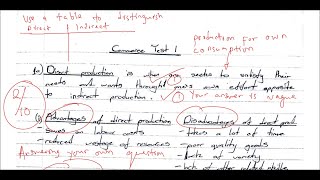 Use a table to distinguish
Direct | Indirect
production for own
consumption
Commerce Test 1
(a) Direct production is when one seeks to satisfy their
needs and wants through ones own effort opposite
to indirect production.
Your answer is vague
2/10
Advantages of direct production
Disadvantages of direct prod
saves on labour costs
takes a lot of time
reduced wastage of resources
poor quality goods
lack of variety
Answering your own question
lack of other related skills